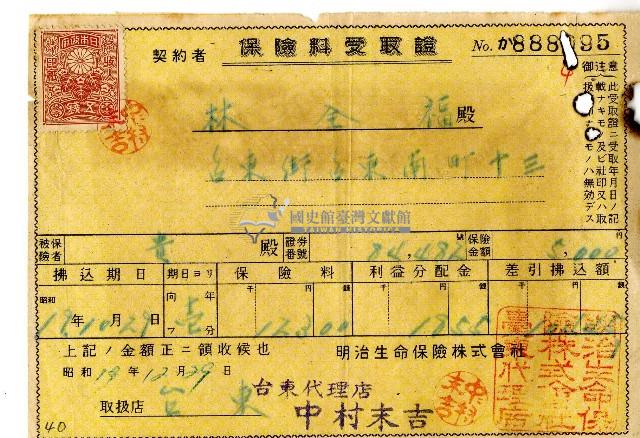 契約者
保險料受取證
No. か888
御注意
此受取證ニ受取年月日ノ記
載ナキモノ及ビ社印又ハ取
扱
モノハ無効デス
林金福殿
台東街台東南町十三
國史館臺灣文獻館
TAIWAN HISTORICA
被保險者
殿
證券番號
84,492
號
保險金額
5,000
円
拂込期日
期日ヨリ
保險料
利益分配金
差引拂込額
昭和
19年10月29日
向フ
壱
年
千 円 錢
千 円 錢
千 円 錢
上記ノ金額正ニ領收候也
明治生命保險株式會社
昭和19年12月29日
台東代理店
取扱店
台東
中村末吉
40